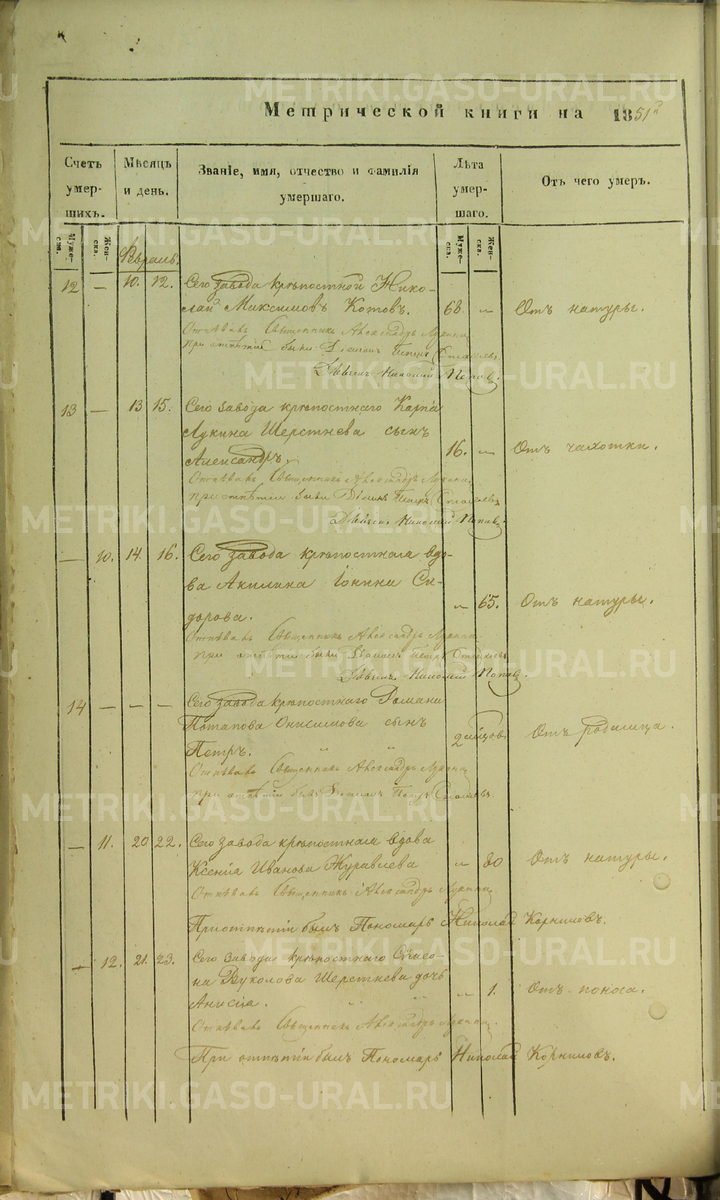 METRIKI.GASO-URAL.RU
Метрической книги на 1851й
Счетъ умершихъ.
Мѣсяцъ и день.
Званіе, имя, отчество и фамилія умершаго.
Лѣта умершаго.
Отъ чего умеръ.
Муже-ска.
Жен-ска.
Муже-ска.
Жен-ска.
Февраль.
12 — 10. 12. Сего завода крѣпостной Нико-
лай Максимовъ Котовъ. 68. — Отъ натуры.
Отпѣвалъ Священникъ Александръ
при отпѣтіи были Діаконъ Петръ
Николай Поповъ.
13 — 13 15. Сего завода крѣпостнаго Карпа
Лукина Шерстнева сынъ
Александръ. 16. — Отъ чахотки.
Отпѣвалъ Священникъ Александръ
при отпѣтіи были Діаконъ Петръ
Николай Поповъ.
— 10. 14. 16. Сего завода крѣпостная вдо-
ва Акилина Іонина Си-
дорова. — 65. Отъ натуры.
Отпѣвалъ Священникъ Александръ
при отпѣтіи были Діаконъ Петръ
Николай Поповъ.
14 — — — Сего завода крѣпостнаго Романа
Потапова Онисимова сынъ
Петръ. Отъ родимца.
Отпѣвалъ Священникъ Александръ
при отпѣтіи былъ Діаконъ Петръ
— 11. 20 22. Сего завода крѣпостная вдова
Ксенія Иванова Журавлева — 80 Отъ натуры.
Отпѣвалъ Священникъ Александръ
При отпѣтіи былъ Пономарь Николай Корниловъ.
— 12. 21. 23. Сего завода крѣпостнаго
Вуколова Шерстнева дочь
Анисія. — 1. Отъ поноса.
Отпѣвалъ Священникъ Александръ
При отпѣтіи былъ Пономарь Николай Корниловъ.